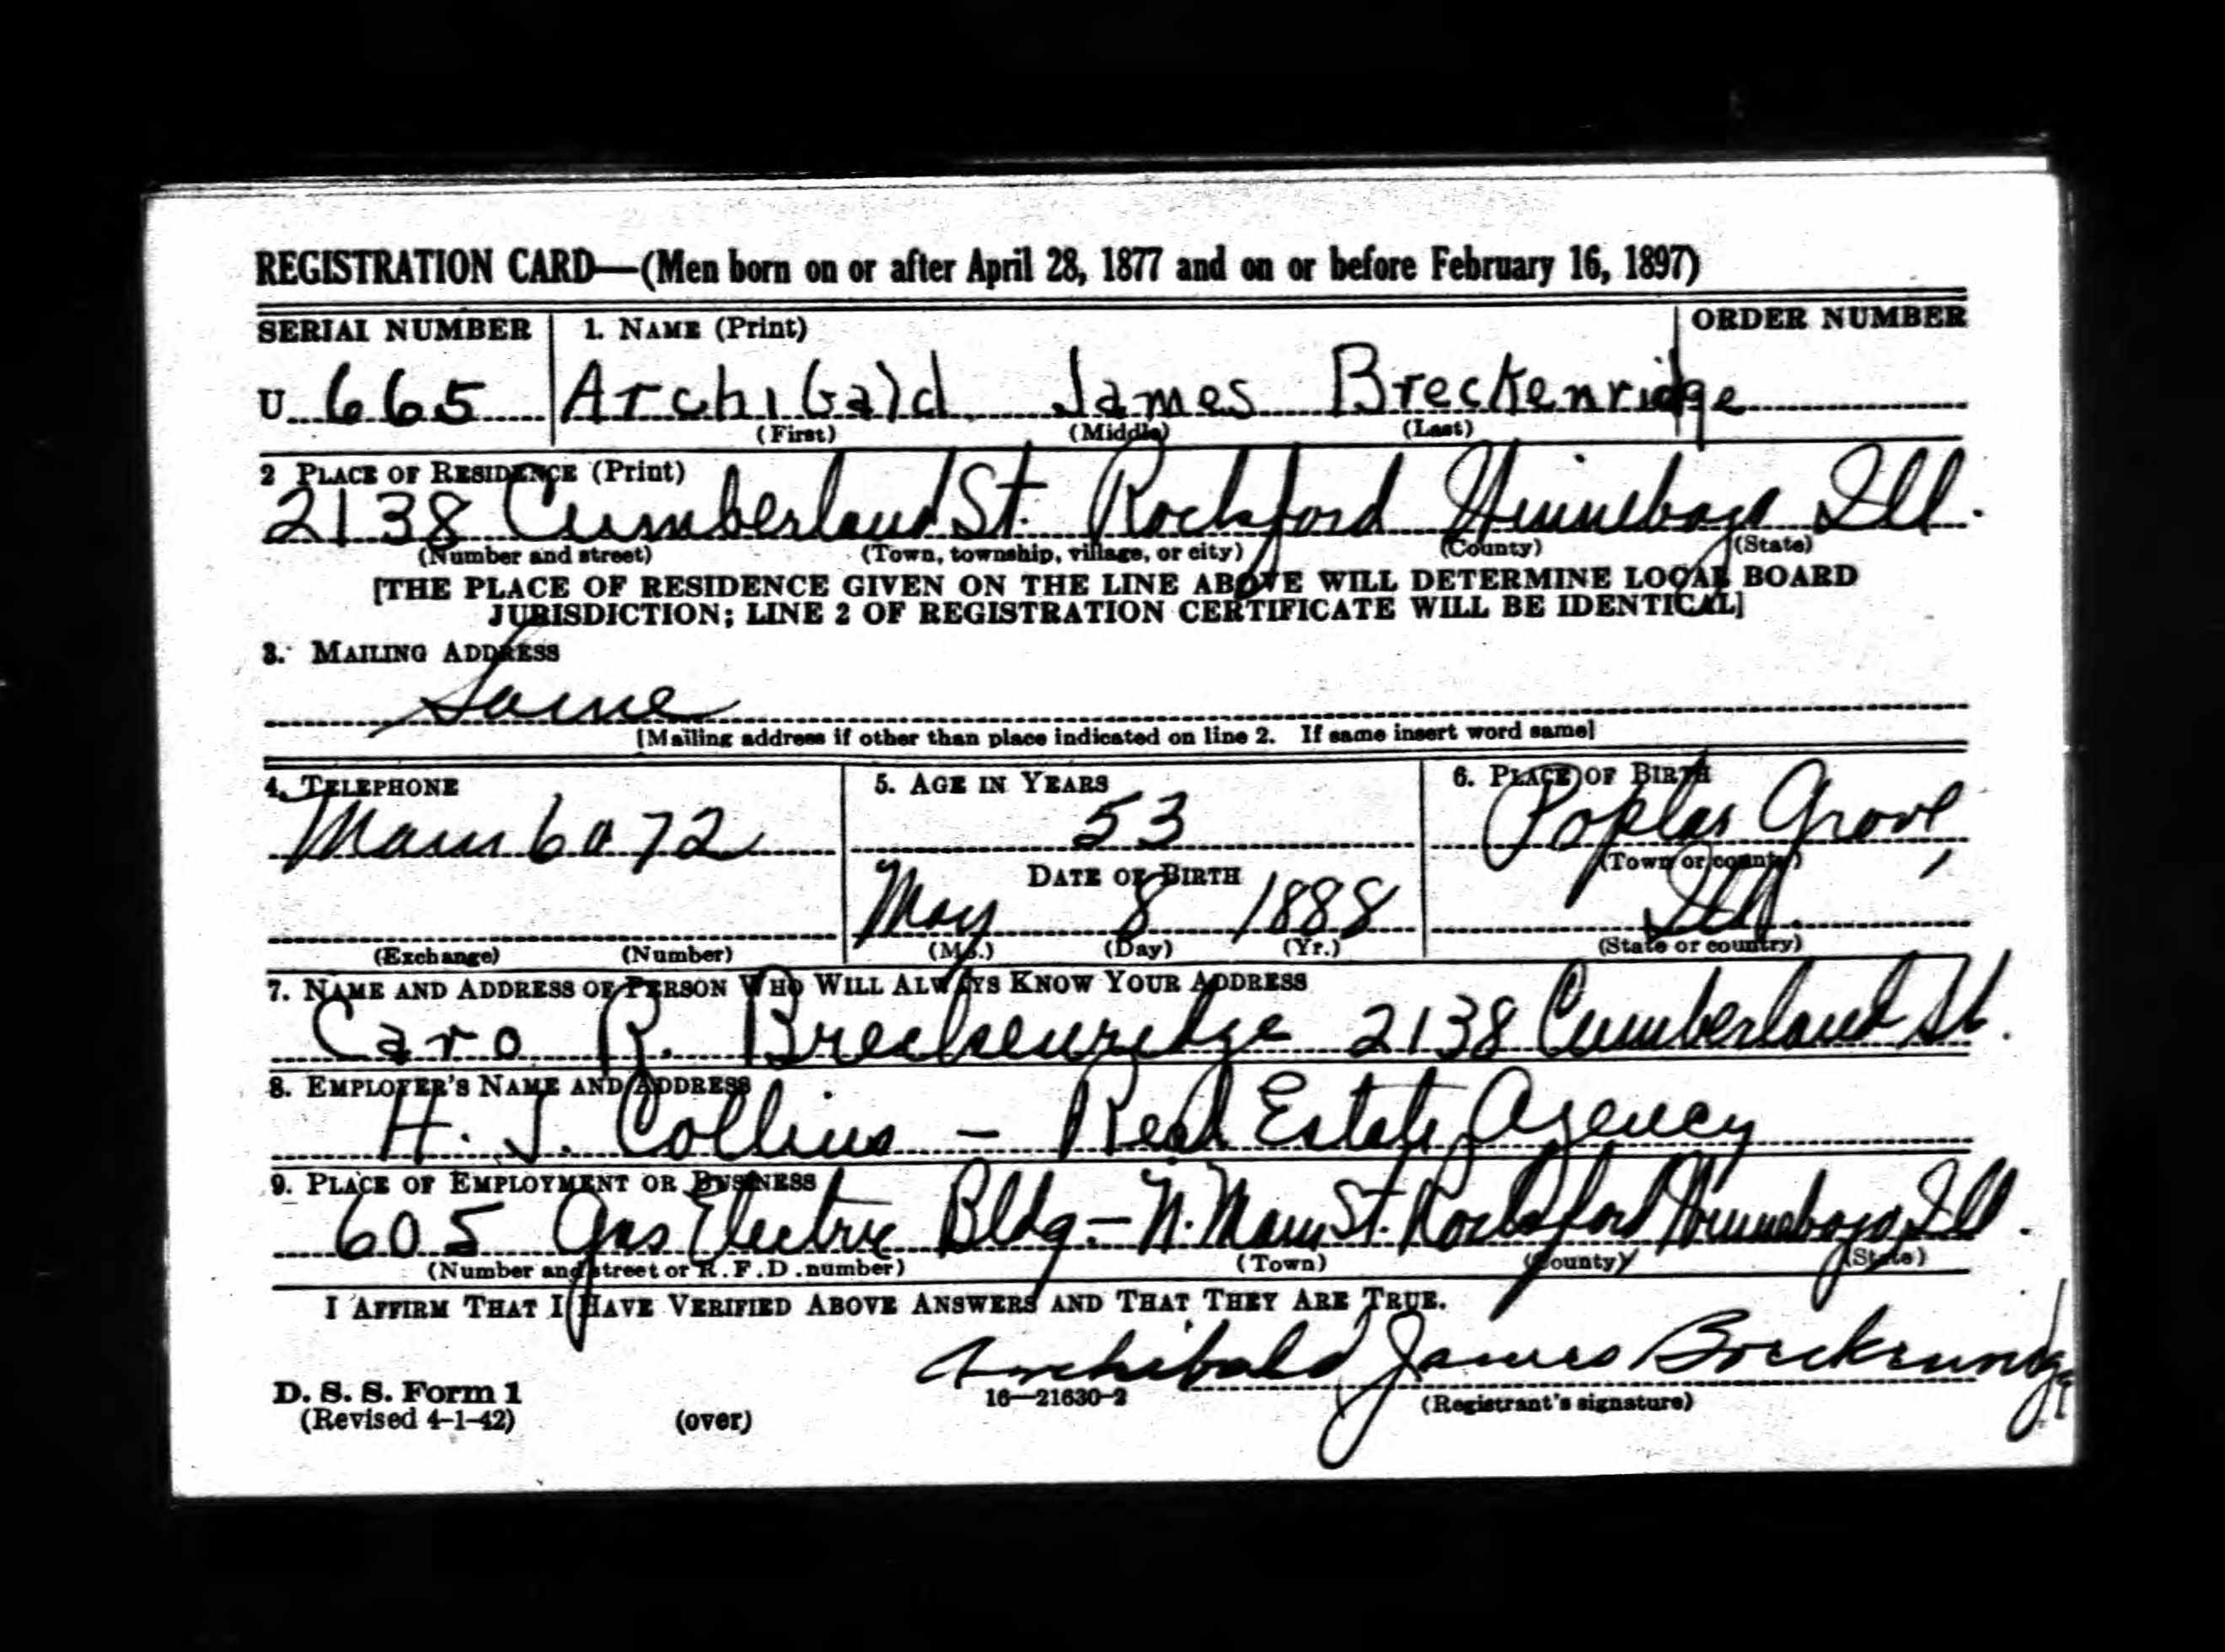 REGISTRATION CARD—(Men born on or after April 28, 1877 and on or before February 16, 1897)
SERIAL NUMBER 1. NAME (Print) ORDER NUMBER
U 665 Archibald James Breckenridge
(First) (Middle) (Last)
2 PLACE OF RESIDENCE (Print)
2138 Cumberland St. Rockford Winnebago Ill.
(Number and street) (Town, township, village, or city) (County) (State)
[THE PLACE OF RESIDENCE GIVEN ON THE LINE ABOVE WILL DETERMINE LOCAL BOARD
JURISDICTION; LINE 2 OF REGISTRATION CERTIFICATE WILL BE IDENTICAL]
3. MAILING ADDRESS
Same
[Mailing address if other than place indicated on line 2. If same insert word same]
4. TELEPHONE 5. AGE IN YEARS 6. PLACE OF BIRTH
Main 53 Poplar Grove,
(Town or county)
DATE OF BIRTH
May 8 1888 Ill.
(Exchange) (Number) (Mo.) (Day) (Yr.) (State or country)
7. NAME AND ADDRESS OF PERSON WHO WILL ALWAYS KNOW YOUR ADDRESS
Caro R. Breckenridge 2138 Cumberland St.
8. EMPLOYER'S NAME AND ADDRESS
H. J. Collins - Real Estate Agency
9. PLACE OF EMPLOYMENT OR BUSINESS
605 Gas Electric Bldg - N. Main St. Rockford Winnebago Ill.
(Number and street or R.F.D. number) (Town) (County) (State)
I AFFIRM THAT I HAVE VERIFIED ABOVE ANSWERS AND THAT THEY ARE TRUE.
Archibald James Breckenridge
D. S. S. Form 1 16—21630-2 (Registrant's signature)
(Revised 4-1-42) (over)